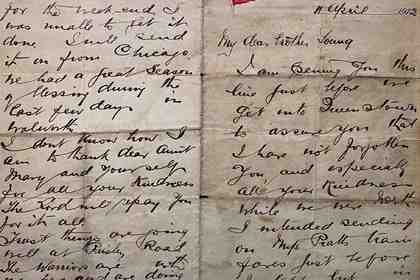 11 April 1912
My dear brother Young
I am penning you this
line just before we
get into Queenstown
to assure you that
I have not forgotten
you and especially
all your kindness
while we were North
I intended sending
on Mrs Pratts train
fare just before
for the week-end I
was unable to get it
done I will send
it on from Chicago.
We had a great Season
of blessing during the
last few days in
Walworth
I dont know how I
am to thank dear Aunt
Mary and yourself
for all your kindness
The Lord will repay you
for it all
Trust things are going
well at Paisley Road
The warriors are with
and are doing